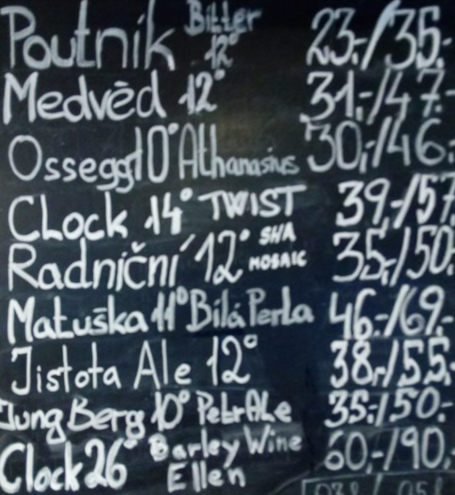 Poutník Bitter 12° 23,-/35,-
Medvěd 12° 31,-/47,-
Ossegg 10° Athanasius 30,-/46,-
CLock 14° TWIST 39,-/57
Radniční 12° SHA MOSAIC 35,-/50,-
Matuška 11° Bílá Perla 46,-/69,-
Jistota Ale 12° 38,-/55,-
Jung Berg 10° Petr Ale 35,-/50,-
Clock 26° Barley Wine Ellen 60,-/90,-